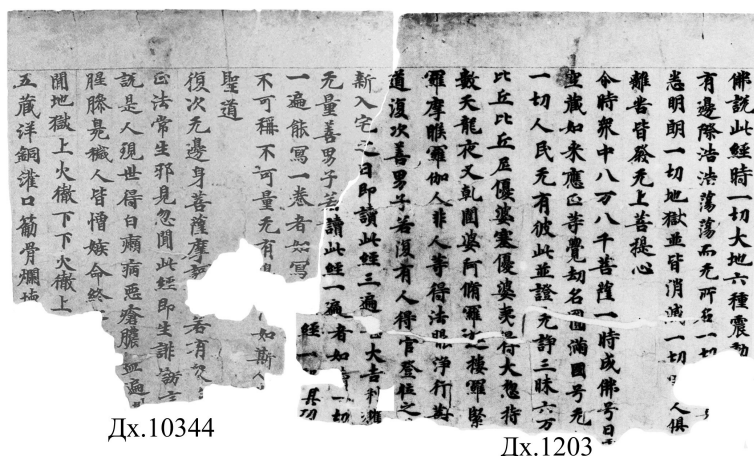 佛說此經時一切大地六種震動
有邊際浩浩蕩蕩而无所名一切
悉明朗一切地獄並皆消滅一切人俱
離苦皆發无上菩提心
尒時衆中八万八千菩薩一時成佛号曰
聖藏如来應正等覺劫名圓滿國号无
一切人民无有彼此並證无諍三昧六万
比丘比丘尼優婆塞優婆夷得大惣持
數天龍夜叉乾闥婆阿脩羅迦樓羅緊
羅摩睺羅伽人非人等得法眼淨行菩
道復次善男子若復有人得官登位之
新入宅之日即讀此經三遍大吉利
无量善男子若讀此經一遍者如一切
一遍能寫一卷者如寫經一其功
不可稱不可量无有如斯
聖道
復次无邊身菩薩摩訶若有
正法常生邪見忽聞此經即生誹謗言
說是人現世得白癩病惡瘡膿血遍
腥臊臭穢人皆憎嫉命終
間地獄上火徹下下火徹上
五藏洋銅灌口筋骨爛壞
Дх.10344
Дх.1203